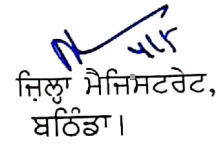 ਜ਼ਿਲ੍ਹਾ ਮੈਜਿਸਟਰੇਟ,
ਬਠਿੰਡਾ।